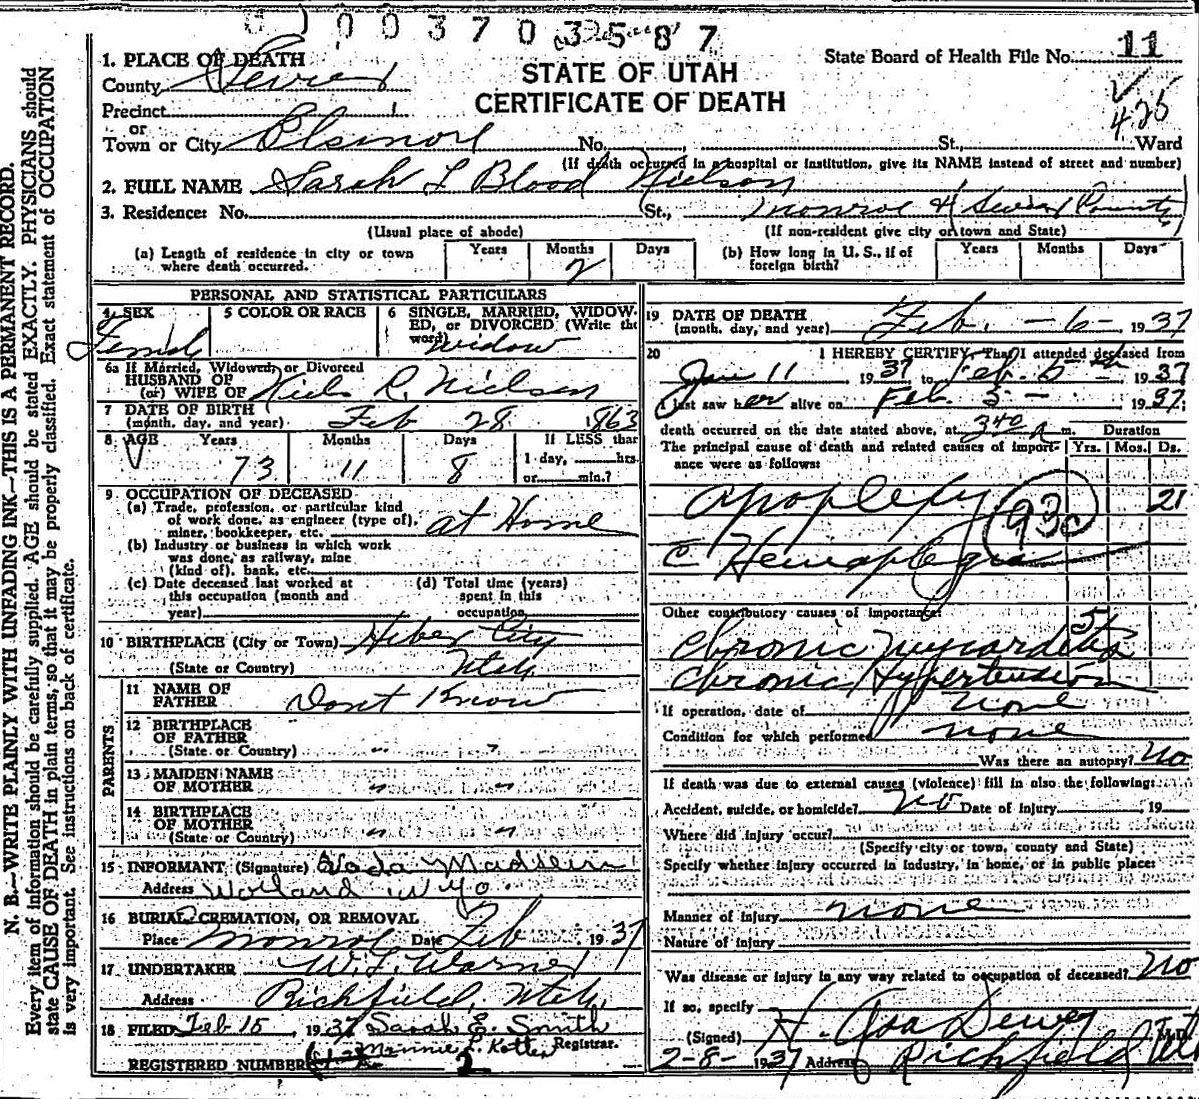 0 0 0 3 7 0 3 5 8 7
State Board of Health File No. 11
STATE OF UTAH
CERTIFICATE OF DEATH
425
1. PLACE OF DEATH
County Sevier
Precinct
or
Town or City Elsinore No. St., Ward
(If death occurred in a hospital or institution, give its NAME instead of street and number)
2. FULL NAME Sarah L Blood Nielson
3. Residence: No. St., Monroe Sevier County
(Usual place of abode) (If non-resident give city or town and State)
(a) Length of residence in city or town where death occurred. Years Months 2 Days
(b) How long in U. S., if of foreign birth? Years Months Days
PERSONAL AND STATISTICAL PARTICULARS
4 SEX Female
5 COLOR OR RACE
6 SINGLE, MARRIED, WIDOWED, or DIVORCED (Write the word) Widow
6a If Married, Widowed, or Divorced
HUSBAND OF
(or) WIFE OF Niels R. Nielson
7 DATE OF BIRTH
(month, day, and year) Feb 28 1863
8 AGE Years 73 Months 11 Days 8 If LESS than 1 day, hrs. or min.?
9 OCCUPATION OF DECEASED
(a) Trade, profession, or particular kind
of work done, as engineer (type of),
miner, bookkeeper, etc. at Home
(b) Industry or business in which work
was done, as railway, mine
(kind of), bank, etc.
(c) Date deceased last worked at
this occupation (month and
year)
(d) Total time (years)
spent in this
occupation
10 BIRTHPLACE (City or Town) Heber City
(State or Country) Utah
PARENTS
11 NAME OF
FATHER Dont Know
12 BIRTHPLACE
OF FATHER
(State or Country) " "
13 MAIDEN NAME
OF MOTHER " "
14 BIRTHPLACE
OF MOTHER
(State or Country) " "
15 INFORMANT (Signature) Madsen
Address Worland Wyo.
16 BURIAL, CREMATION, OR REMOVAL
Place Monroe Date Feb 1937
17 UNDERTAKER W. L. Warner
Address Richfield, Utah
18 FILED Feb 15, 1937 Sarah E. Smith
Minnie L. Kotter Registrar.
REGISTERED NUMBER 2
19 DATE OF DEATH
(month, day, and year) Feb. - 6 - 1937
20 I HEREBY CERTIFY, That I attended deceased from
Jan 11 1937 to Feb. 5th 1937
I last saw her alive on Feb. 5 - 1937;
death occurred on the date stated above, at 340 a m. Duration
The principal cause of death and related causes of importance were as follows: Yrs. Mos. Ds.
apoplexy 21
93c
c Hemaplegia
Other contributory causes of importance:
Chronic Myocarditis 5
Chronic Hypertension
If operation, date of none
Condition for which performed none
Was there an autopsy? no
If death was due to external causes (violence) fill in also the following:
Accident, suicide, or homicide? no Date of injury 19
Where did injury occur?
(Specify city or town, county and State)
Specify whether injury occurred in industry, in home, or in public place:
Manner of injury none
Nature of injury
Was disease or injury in any way related to occupation of deceased? No
If so, specify
(Signed) H. Asa Dewey
2-8-1937 Address Richfield Utah
N. B.—WRITE PLAINLY WITH UNFADING INK—THIS IS A PERMANENT RECORD.
Every item of information should be carefully supplied. AGE should be stated EXACTLY. PHYSICIANS should
state CAUSE OF DEATH in plain terms, so that it may be properly classified. Exact statement of OCCUPATION
is very important. See instructions on back of certificate.